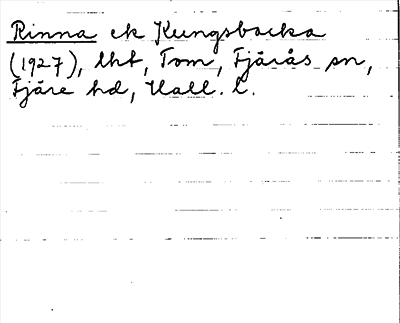 Rinna ek Kungsbacka
(1927), lht, Tom, Fjärås sn,
Fjäre hd, Hall. l.